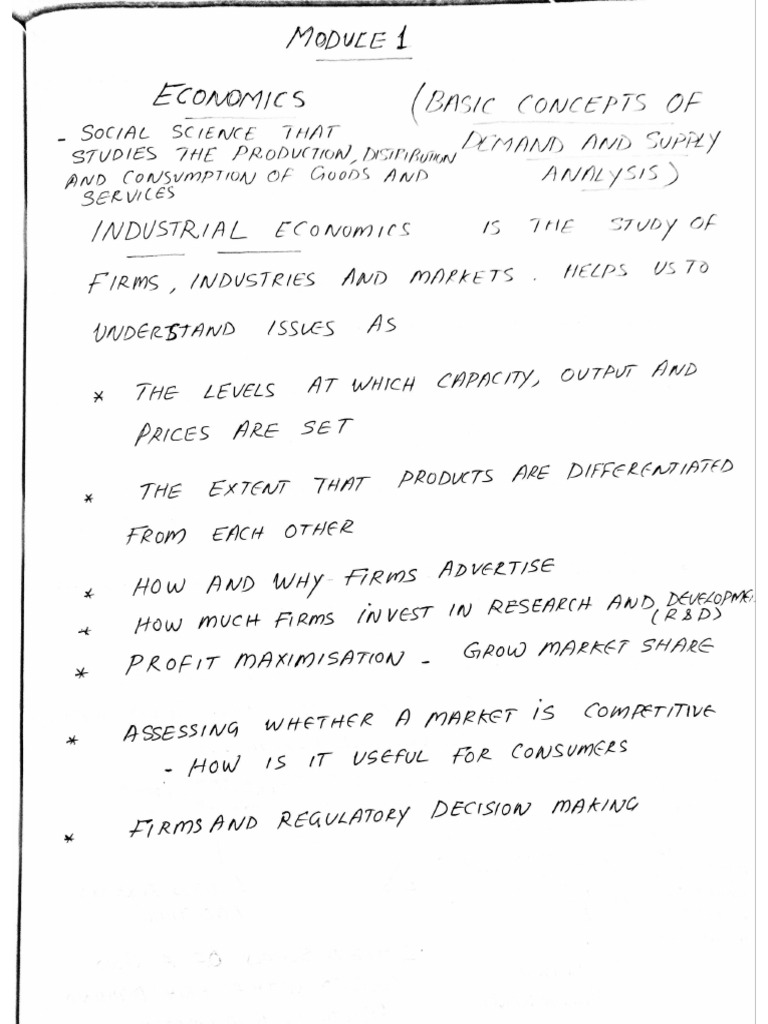 MODULE 1
ECONOMICS (BASIC CONCEPTS OF
DEMAND AND SUPPLY
ANALYSIS)
- SOCIAL SCIENCE THAT
STUDIES THE PRODUCTION, DISTRIBUTION
AND CONSUMPTION OF GOODS AND
SERVICES
INDUSTRIAL ECONOMICS IS THE STUDY OF
FIRMS, INDUSTRIES AND MARKETS. HELPS US TO
UNDERSTAND ISSUES AS
* THE LEVELS AT WHICH CAPACITY, OUTPUT AND
PRICES ARE SET
* THE EXTENT THAT PRODUCTS ARE DIFFERENTIATED
FROM EACH OTHER
* HOW AND WHY FIRMS ADVERTISE
* HOW MUCH FIRMS INVEST IN RESEARCH AND DEVELOPME
(R&D)
* PROFIT MAXIMISATION - GROW MARKET SHARE
* ASSESSING WHETHER A MARKET IS COMPETITIVE
- HOW IS IT USEFUL FOR CONSUMERS
* FIRMS AND REGULATORY DECISION MAKING